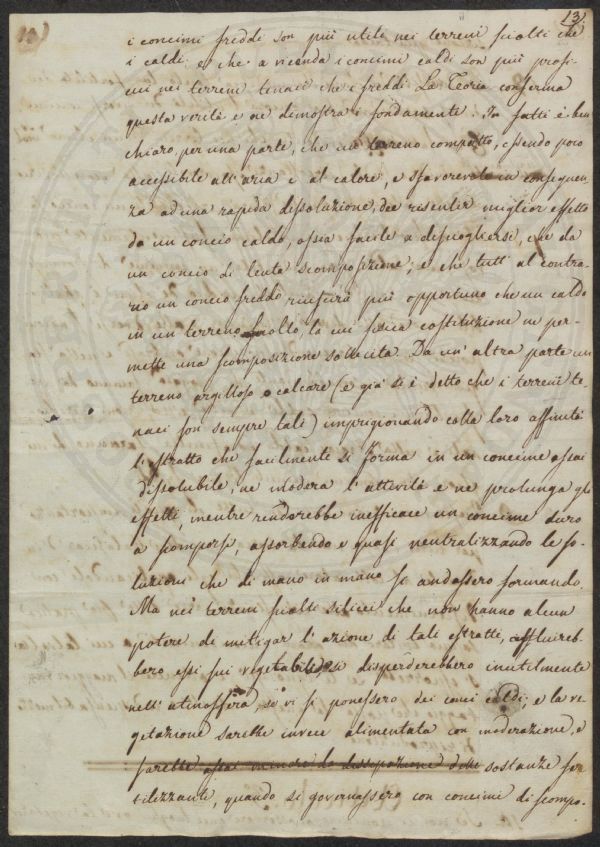 13.
i concimi freddi son più utili nei terreni sciolti che
i caldi; e che a vicenda i concimi caldi son più profi-
cui nei terreni tenaci che i freddi. La Teoria conferma
questa verità e ne dimostra i fondamenti. In fatti è ben
chiaro, per una parte, che un terreno compatto, essendo poco
accessibile all'aria e al calore, e sfavorevole in conseguen-
za ad una rapida dissoluzione, dee risentir miglior effetto
da un concio caldo, ossia facile a disciogliersi, che da
un concio di lenta scomposizione; e che tutt'al contra-
rio un concio freddo riuscirà più opportuno che un caldo
in un terreno sciolto, la cui fisica costituzione ne per-
mette una scomposizione sollecita. Da un'altra parte un
terreno argilloso o calcare (e già si è detto che i terreni te-
naci son sempre tali) imprigionando colla loro affinità
l'estratto che facilmente si forma in un concime assai
dissolubile, ne modera l'attività e ne prolunga gli
effetti, mentre renderebbe inefficace un concime duro
a scomporsi, assorbendo e quasi neutralizzando le so-
luzioni che di mano in mano si andassero formando.
Ma nei terreni sciolti silicei che non hanno alcun
potere di mitigar l'azione di tali estratti, affluireb-
bero essi sui vegetabili, si disperderebbero inutilmente
nell'atmosfera, se vi si ponessero dei conci caldi; e la ve-
getazione sarebbe invece alimentata con moderazione, e
sarebbe assai minore la dissipazione delle sostanze fer-
tilizzanti, quando si governassero con concimi di scompo-